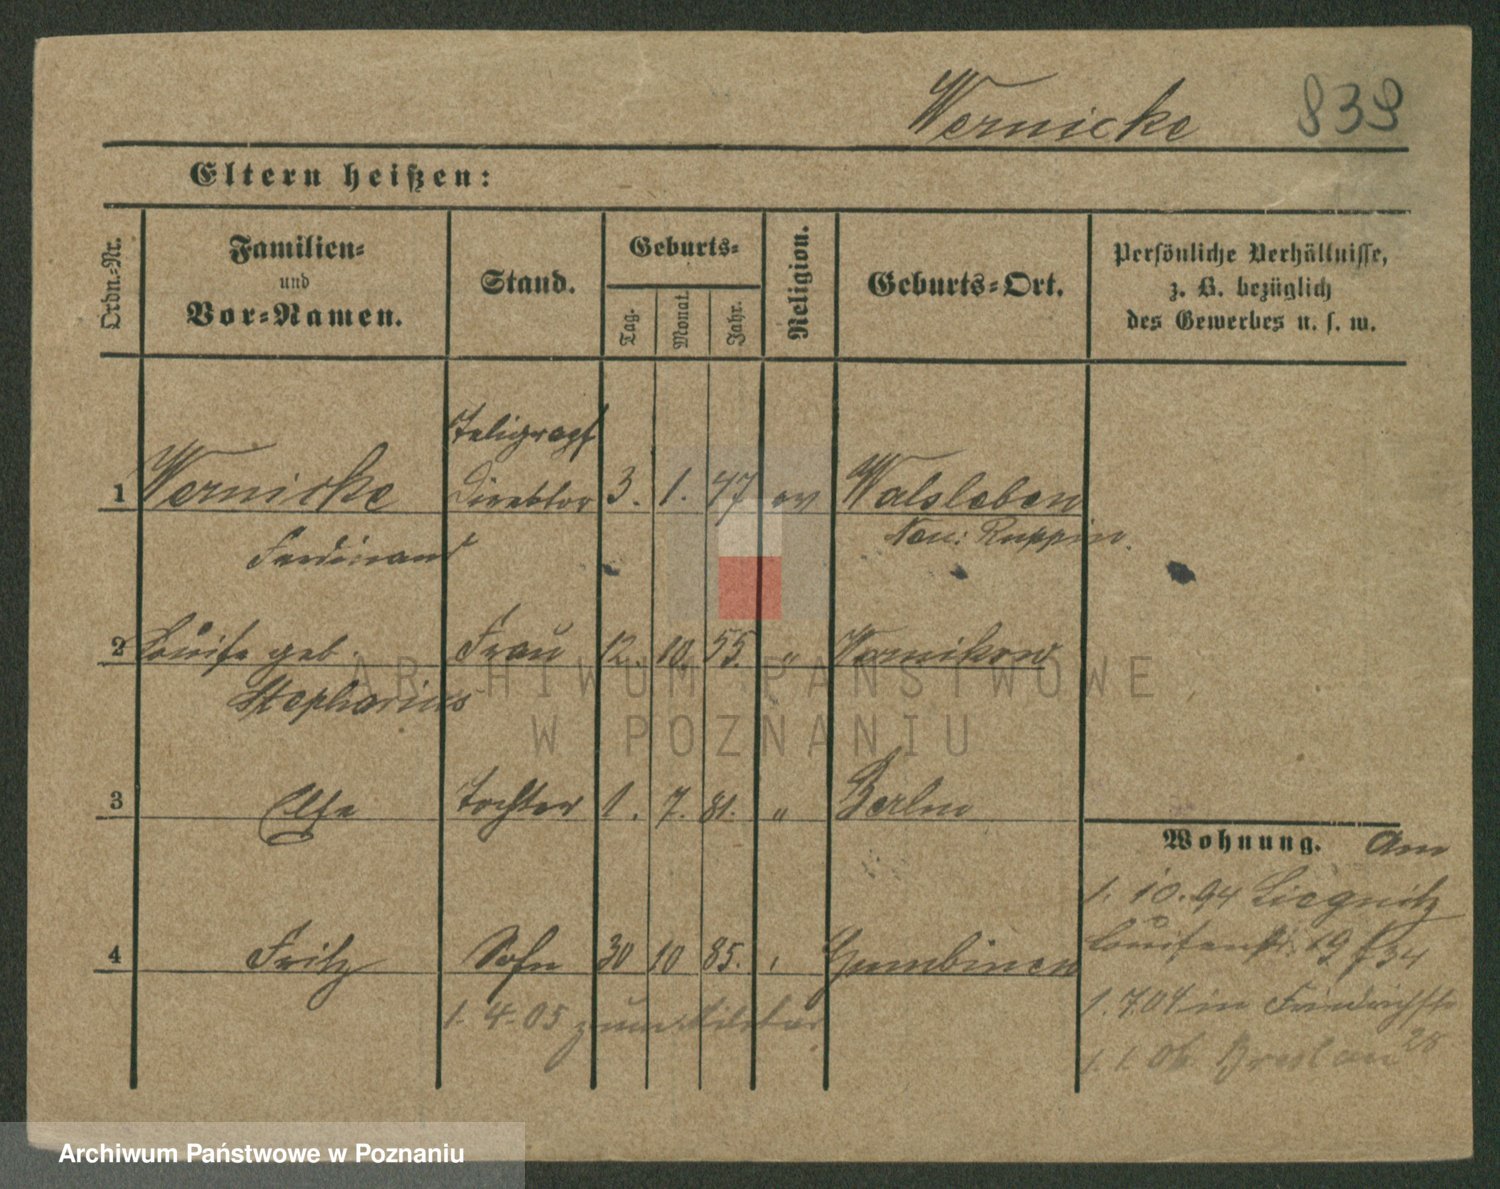 Wernicke 839
Eltern heißen:
Ordn.-Nr.
Familien-
und
Vor-Namen.
Stand.
Geburts-
Tag.
Monat.
Jahr.
Religion.
Geburts-Ort.
Persönliche Verhältnisse,
z. B. bezüglich
des Gewerbes u. s. w.
Telegraph
1 Wernicke Direktor 3. 1. 47 ev Walsleben
Ferdinand Neu: Ruppin.
2 Louise geb. Frau 12. 10. 55. " Wernikow
Stephanius
3 Else Tochter 1. 7. 81. " Berlin
Wohnung. Am
1. 10. 94 Liegnitz
4 Fritz Sohn 30 10 85. " Gumbinen
Louisenstr. 19
1. 4. 05 zum Militär
1. 7. 04 in Friedrichstr
25
1. 1. 06. Breslau
ARCHIWUM PAŃSTWOWE
W POZNANIU
Archiwum Państwowe w Poznaniu